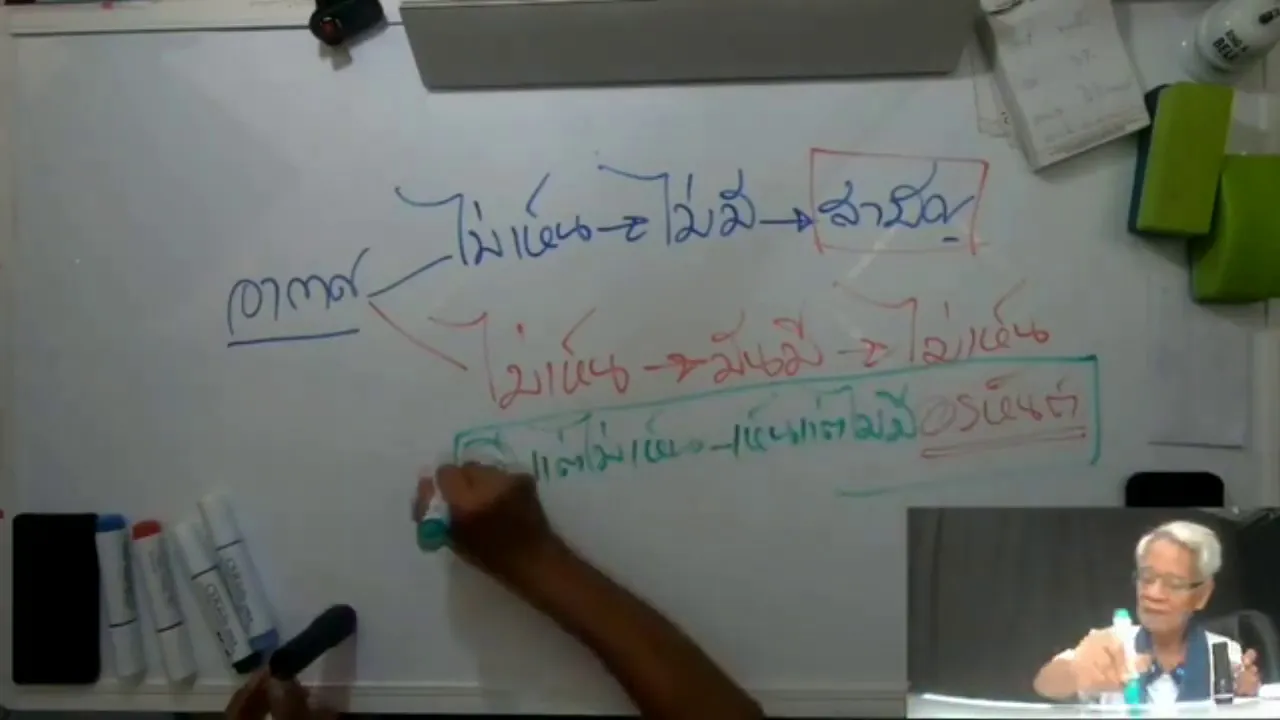 ไม่เห็น → ไม่มี → สามัญ
อากาศ
ไม่เห็น → มันมี → ไม่เห็น
มี แต่ไม่เห็น - เห็นแต่ไม่มี อรหันต์